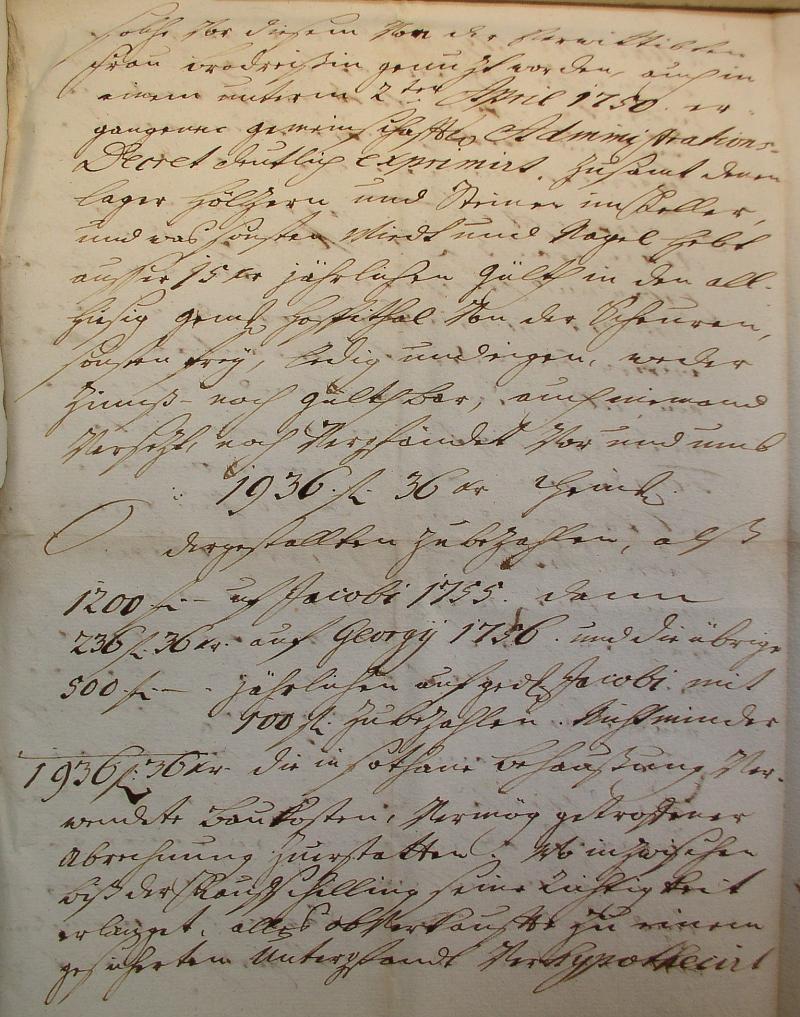 solche vor diesem von der Verwittibten
Frau genutzt worden, auch in
einem unterm 2ten April 1750. er-
gangenen gemeinschafftl. Administrations-
Decret deutlich exprimirt. zusamt denen
Lager Höltzern und Steinen im Keller,
und was sonsten Niedt und Nagel hebt
ausser 15 Kr jährlichen Gülth in den all-
hiesig Hospithal von der Scheuren,
sonsten frey, ledig und eigen, weder
Zinnß- noch Gülthbar, auch niemand
Versezt, noch Verpfändet vor und umb
1936 f. 36 Kr
dergestallten zubezahlen, alß
1200 f. – uf Jacobi 1755. dann
236 f. 36 Kr. auf Georgÿ 1756. und die übrige
500 f. – . jährlichen auf Jacobi mit
100 f. zubezahlen. Nicht minder
1936 f. 36 Kr. die in sothane Behaußung Ver-
wendete Baukosten, Vermög getroffener
Abrechnung zuerstatten; inzwischen
biß der Kauffschilling seine Richtigkeit
erlanget, alles obverkauffte zu einem
gesicherten Unterpfandt Verhypothecirt